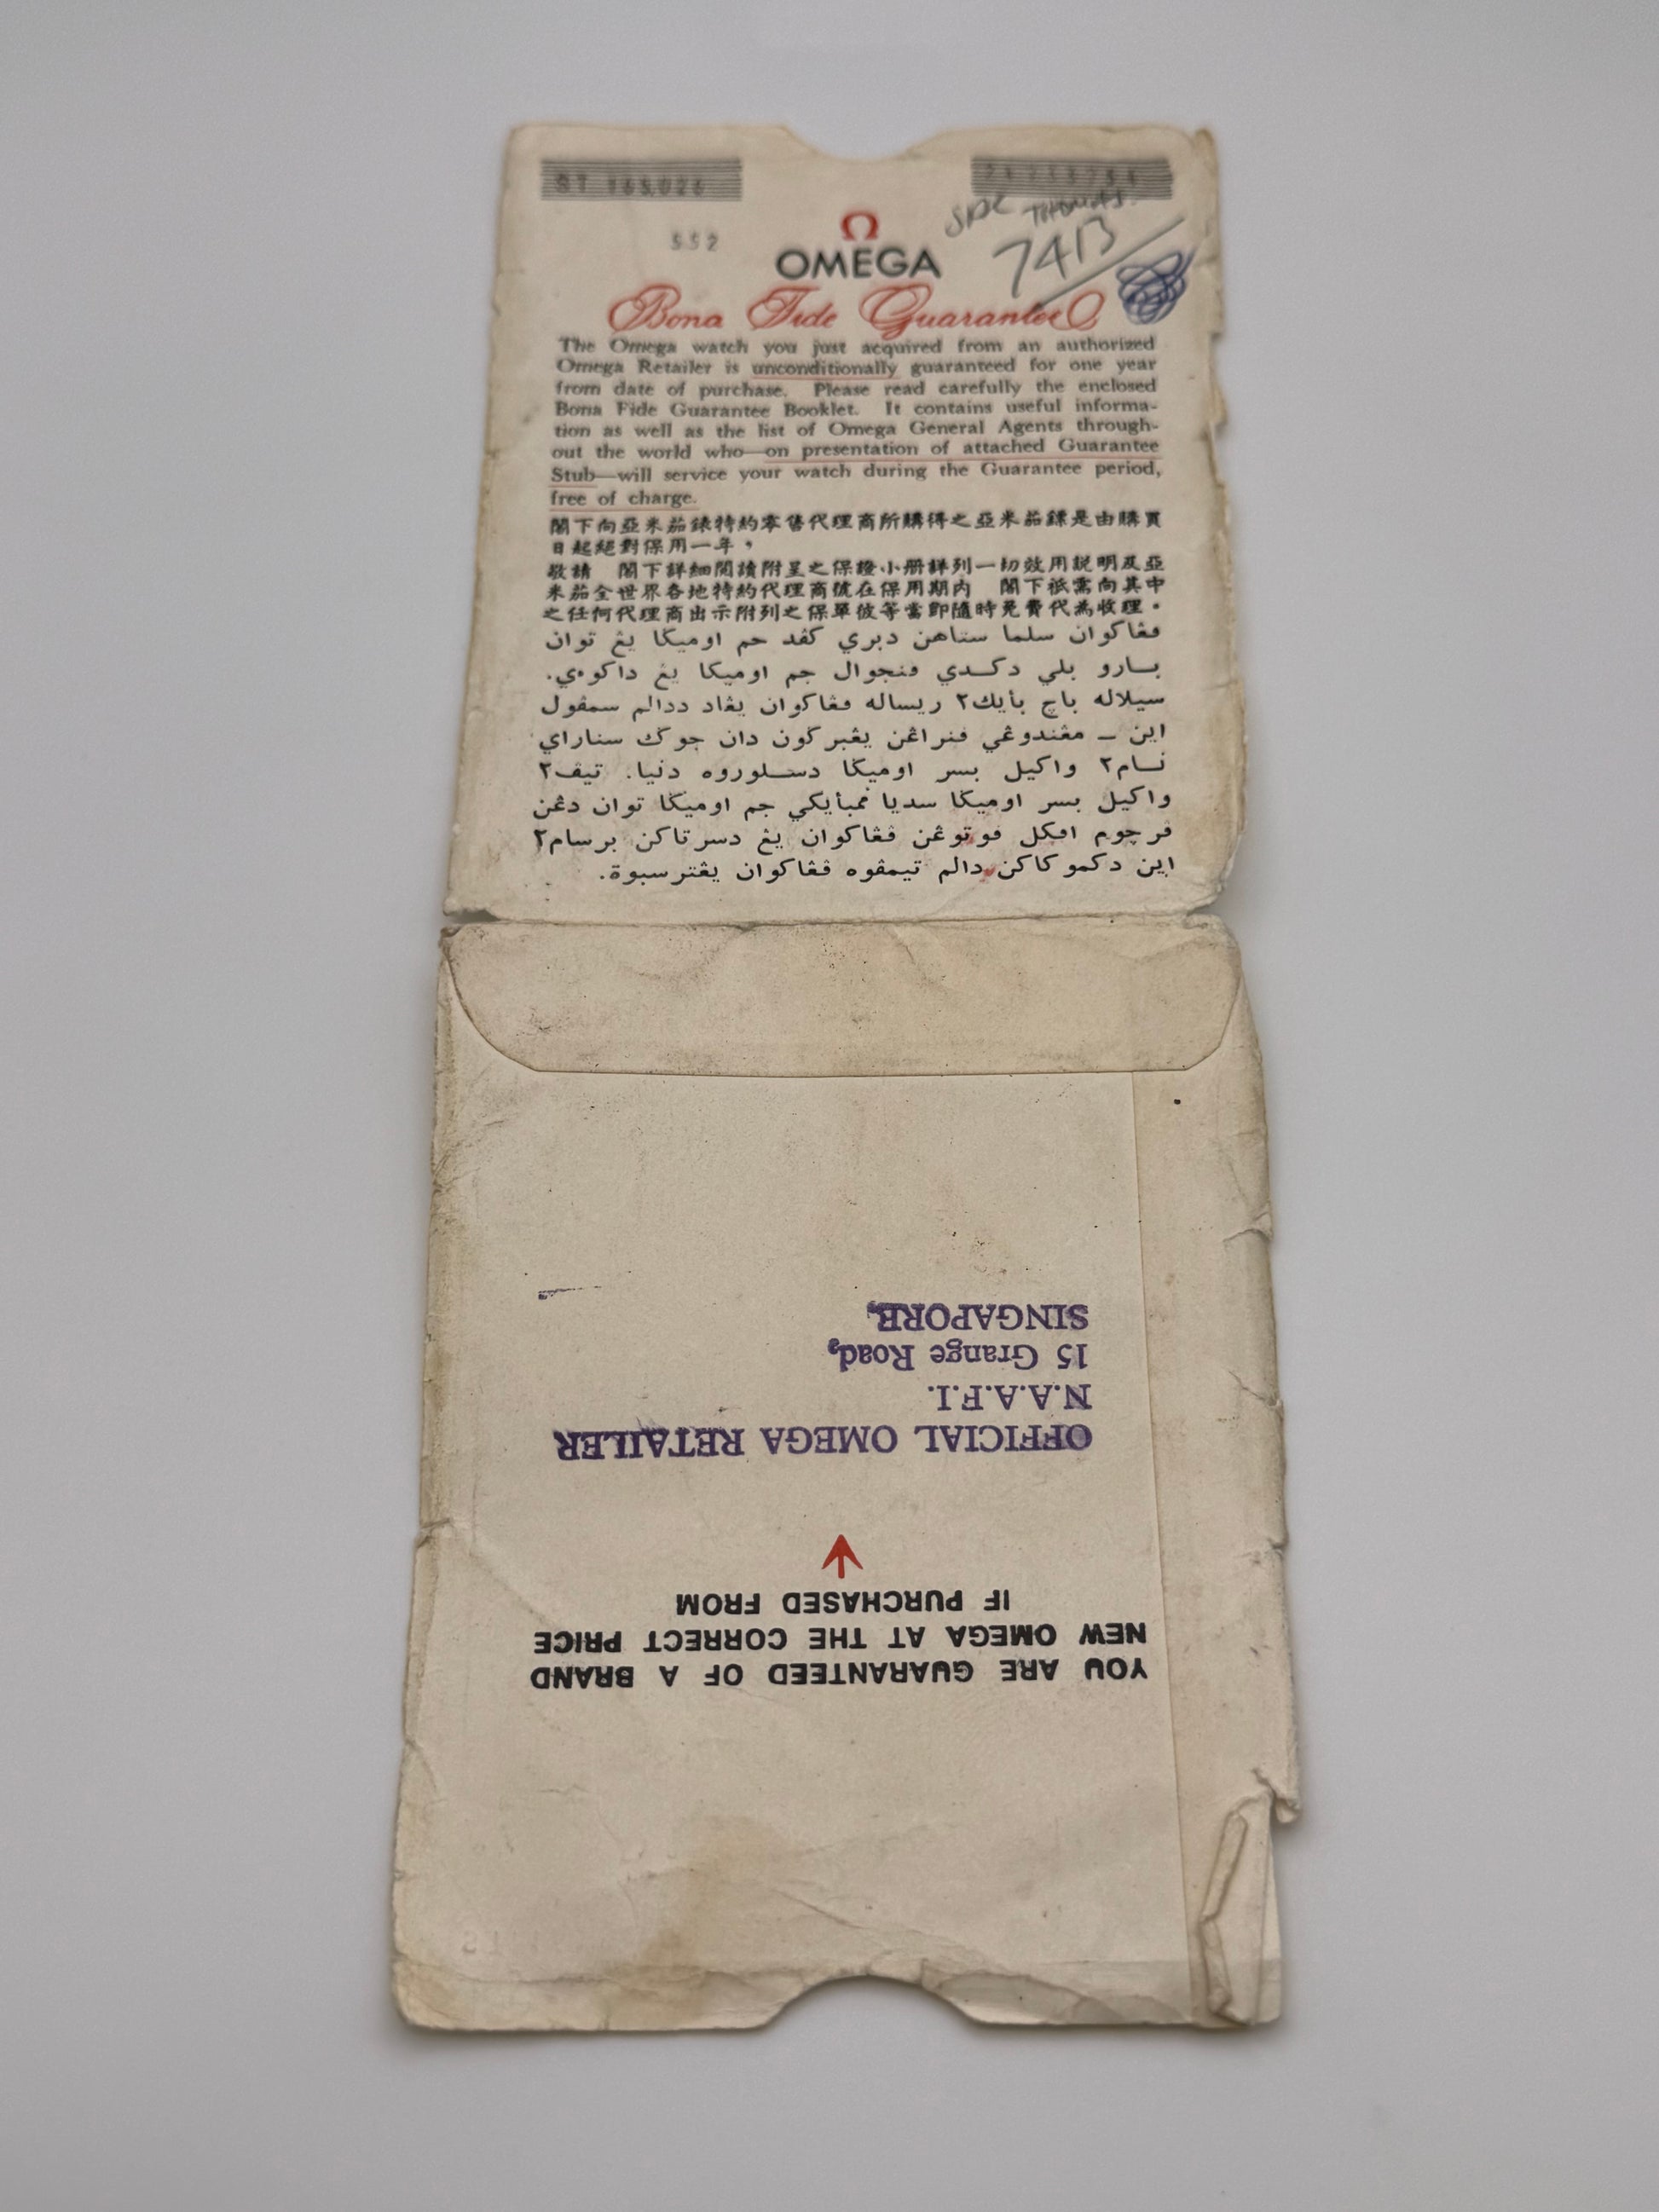 ST 165.026
552
OMEGA
7413
Bona Fide Guarantee
The Omega watch you just acquired from an authorized
Omega Retailer is unconditionally guaranteed for one year
from date of purchase. Please read carefully the enclosed
Bona Fide Guarantee Booklet. It contains useful informa-
tion as well as the list of Omega General Agents through-
out the world who—on presentation of attached Guarantee
Stub—will service your watch during the Guarantee period,
free of charge.
閣下向亞米茄錶特約零售代理商所購得之亞米茄鏢是由購買
日起絕對保用一年。
敬請 閣下詳細閱讀附呈之保證小册詳列一切效用説明及亞
米茄全世界各地特約代理商號在保用期內 閣下祇需向其中
之任何代理商出示附列之保單彼等當即隨時免費代為收理。
ڤڠاكوان سلما ستاهن دبري كڤد جم اوميݢا يڠ توان
بارو بلي دكدي ڤنجوال جم اوميݢا يڠ داكوءي.
سيلاله باچ بأيك٢ ريساله ڤڠاكوان يڠاد ددالم سمڤول
اين – مڠندوڠي ڤنراڠن يڠبرݢون دان جوݢ سناراي
نام٢ واكيل بسر اوميݢا دسلوروه دنيا. تيڤ٢
واكيل بسر اوميݢا سديا ممبأيكي جم اوميݢا توان دڠن
ڤرچوم اڤبيل ڤوتوڠن ڤڠاكوان يڠ دسرتاكن برسام٢
اين دكموكاكن دالم تيمڤوه ڤڠاكوان يڠترسبوة.
YOU ARE GUARANTEED OF A BRAND
NEW OMEGA AT THE CORRECT PRICE
IF PURCHASED FROM
OFFICIAL OMEGA RETAILER
N.A.A.F.I.
15 Grange Road,
SINGAPORE,